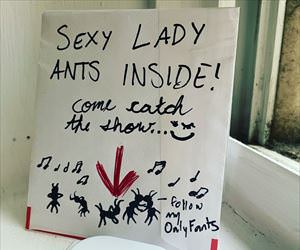 SEXY LADY
ANTS INSIDE!
come catch
the show...
follow
my
OnlyFants